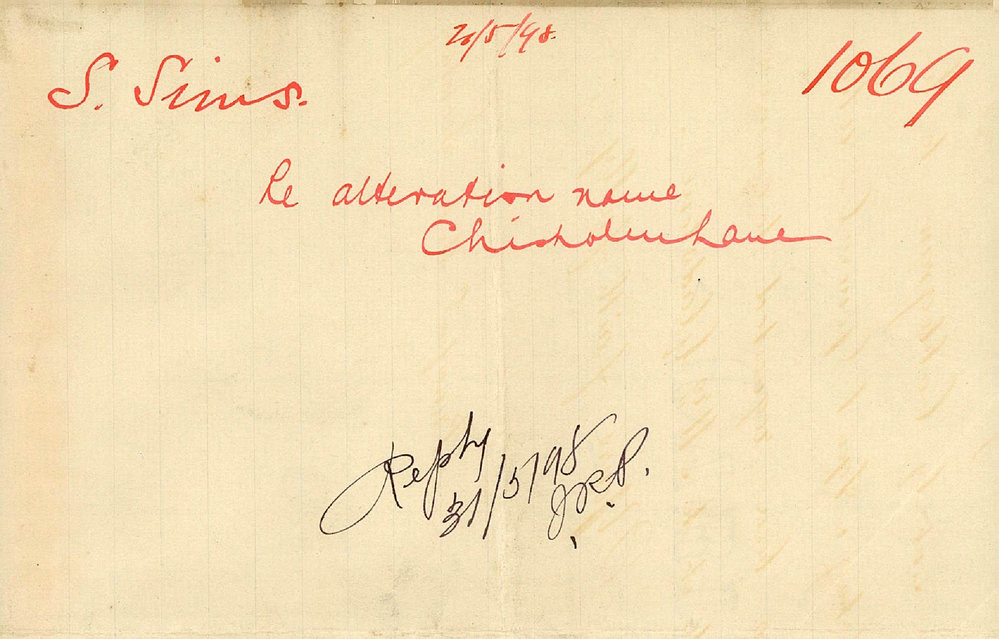 20/5/98.
S. Sims.
1069
Re alteration name
Chisholm Lane
Reply
31/5/98
J.R.P.